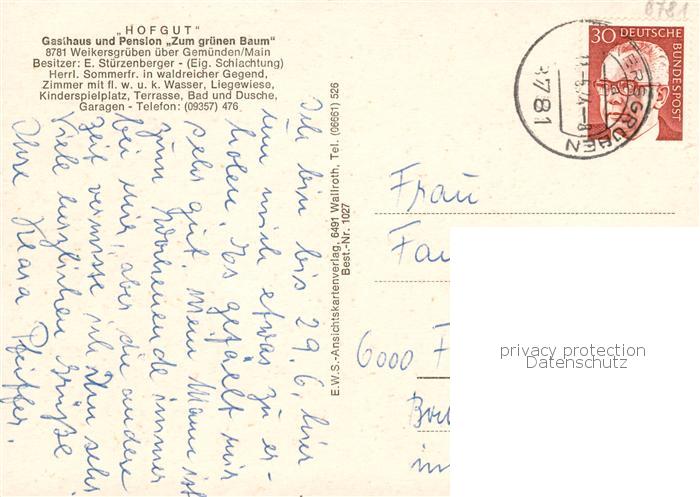 8781
„HOFGUT“
Gasthaus und Pension „Zum grünen Baum“
8781 Weikersgrüben über Gemünden/Main
Besitzer: E. Stürzenberger - (Eig. Schlachtung)
Herrl. Sommerfr. in waldreicher Gegend,
Zimmer mit fl. w. u. k. Wasser, Liegewiese,
Kinderspielplatz, Terrasse, Bad und Dusche,
Garagen - Telefon: (09357) 476
30 DEUTSCHE
BUNDESPOST
8781
Ich bin bis 29.6. hier
um mich etwas zu er-
holen. Es gefällt mir
sehr gut. Mein Mann ist
zum Wochenende immer
bei mir, aber die andere
Zeit vermisse ich ihn sehr.
Viele herzlichen Grüße
Ihre Klara Pfeiffer.
E.W.S.-Ansichtskartenverlag, 6491 Wallroth, Tel. (06661) 526
Best.-Nr. 1027
Frau
Fau
6000 F
in
privacy protection
Datenschutz